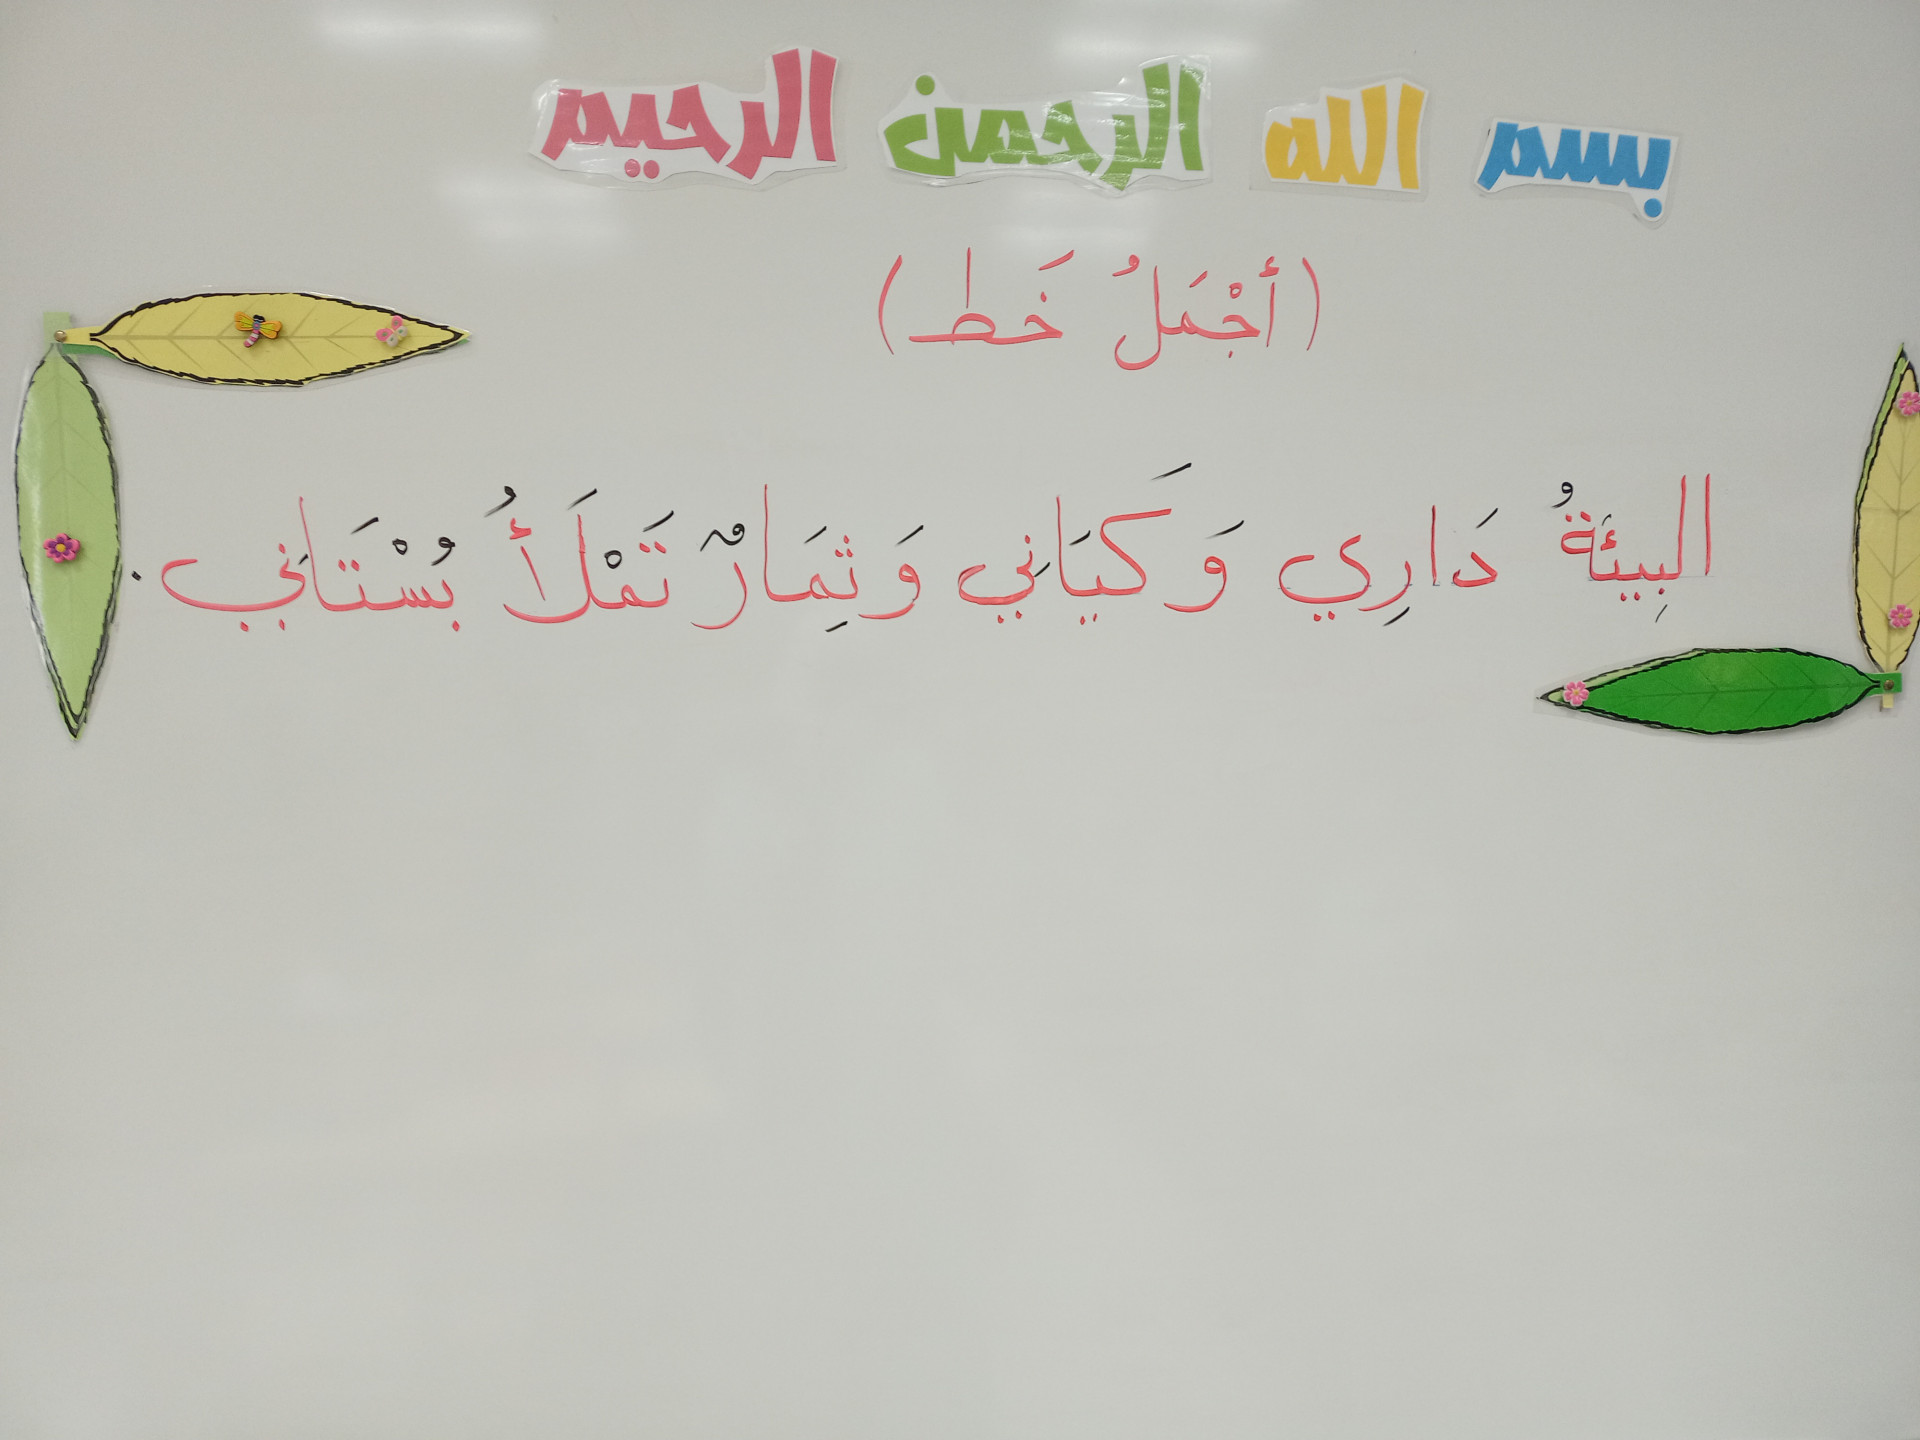 بسم الله الرحمن الرحيم
(أجْمَلُ خَط)
البِيئَةُ دَارِي وَ كَيَانِي وَ ثِمَارٌ تَمْلَأُ بُسْتَانِي.